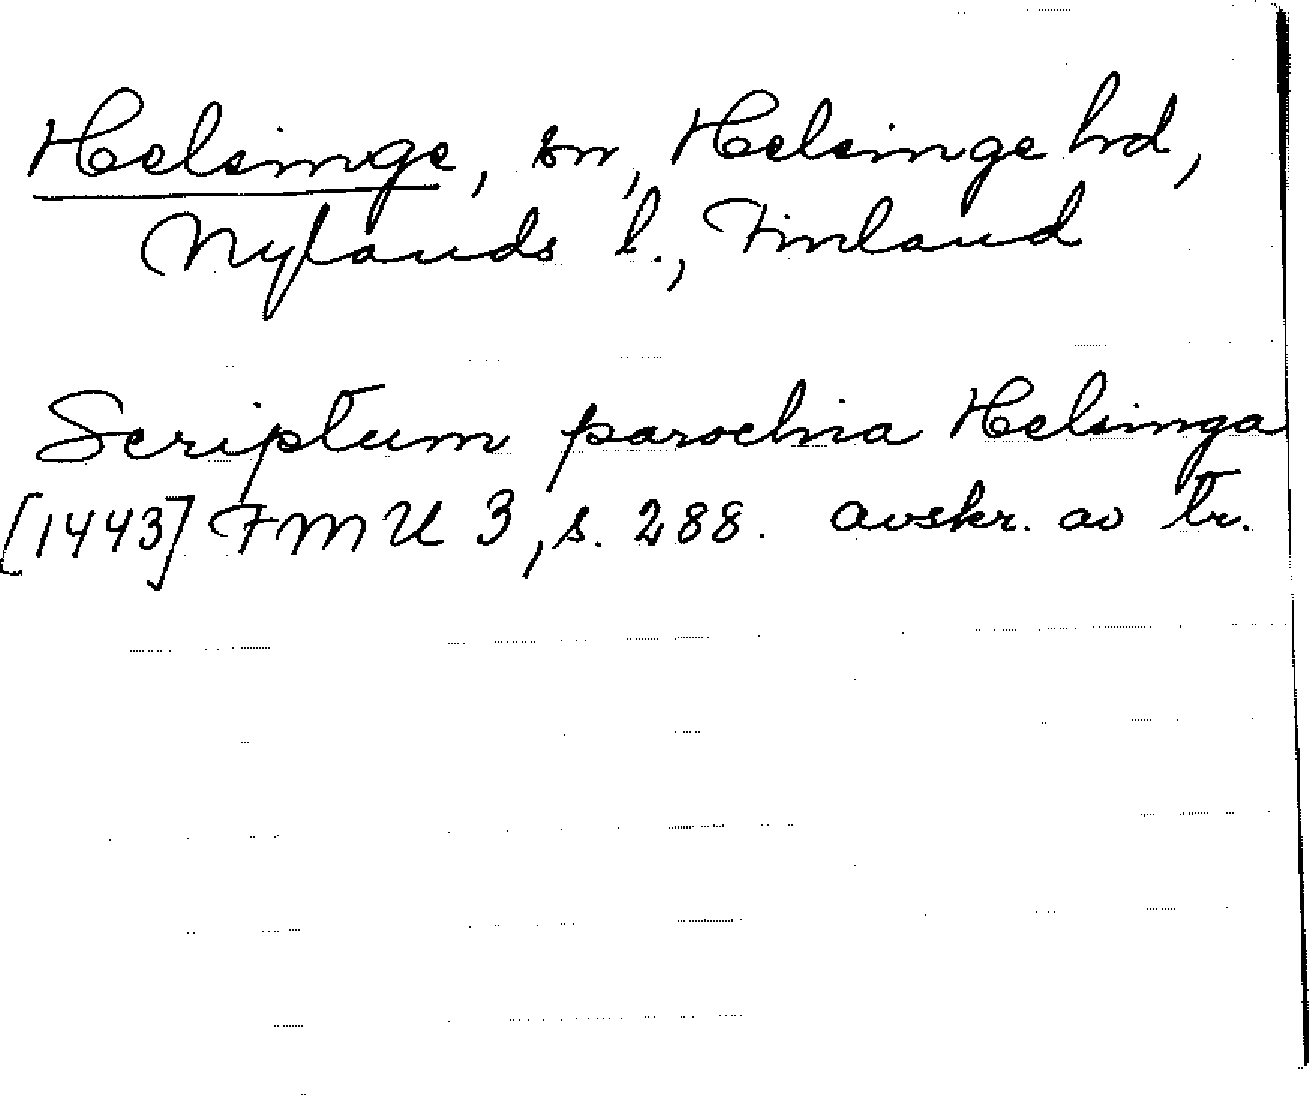 Helsinge, sn, Helsinge hrd,
Nylands l., Finland
Scriptum parochia Helsinga
[1443] FMU 3, s. 288. avskr. av tr.